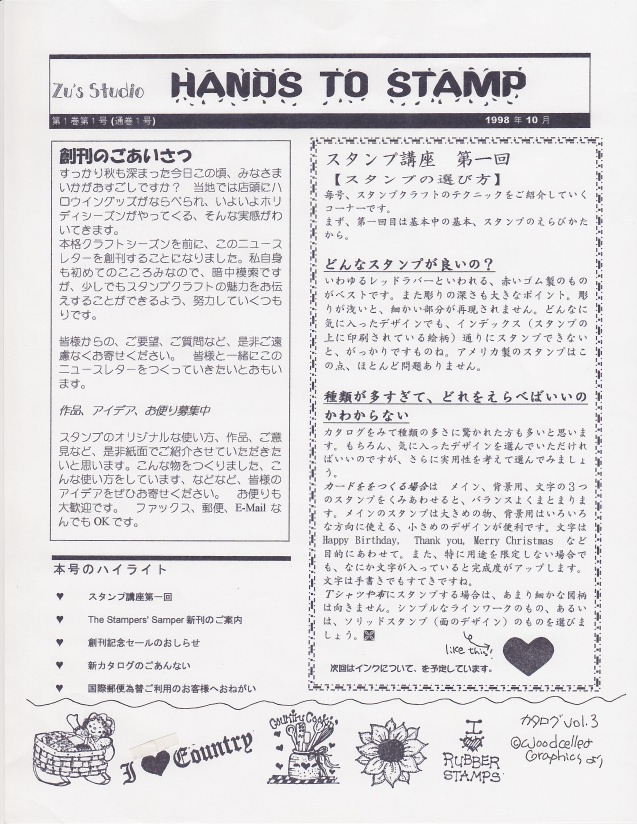 Zu's Studio HANDS TO STAMP
第1巻第1号(通巻1号) 1998年10月
創刊のごあいさつ
すっかり秋も深まった今日この頃、みなさま
いかがおすごしですか？ 当地では店頭にハ
ロウイングッズがならべられ、いよいよホリ
ディシーズンがやってくる、そんな実感がわ
いてきます。
本格クラフトシーズンを前に、このニュース
レターを創刊することになりました。私自身
も初めてのこころみなので、暗中模索です
が、少しでもスタンプクラフトの魅力をお伝
えすることができるよう、努力していくつも
りです。
皆様からの、ご要望、ご質問など、是非ご遠
慮なくお寄せください。 皆様と一緒にこの
ニュースレターをつくっていきたいとおもい
ます。
作品、アイデア、お便り募集中
スタンプのオリジナルな使い方、作品、ご意
見など、是非紙面でご紹介させていただきた
いと思います。こんな物をつくりました、こ
んな使い方をしています、などなど、皆様の
アイデアをぜひお寄せください。 お便りも
大歓迎です。 ファックス、郵便、E-Mail な
んでも OK です。
本号のハイライト
♥ スタンプ講座第一回
♥ The Stampers' Samper 新刊のご案内
♥ 創刊記念セールのおしらせ
♥ 新カタログのごあんない
♥ 国際郵便為替ご利用のお客様へおねがい
スタンプ講座 第一回
【スタンプの選び方】
毎号、スタンプクラフトのテクニックをご紹介していく
コーナーです。
まず、第一回目は基本中の基本、スタンプのえらびかた
から。
どんなスタンプが良いの？
いわゆるレッドラバーといわれる、赤いゴム製のもの
がベストです。また彫りの深さも大きなポイント。彫
りが浅いと、細かい部分が再現されません。どんなに
気に入ったデザインでも、インデックス（スタンプの
上に印刷されている絵柄）通りにスタンプできない
と、がっかりですものね。アメリカ製のスタンプはこ
の点、ほとんど問題ありません。
種類が多すぎて、どれをえらべばいいの
かわからない
カタログをみて種類の多さに驚かれた方も多いと思いま
す。もちろん、気に入ったデザインを選んでいただけれ
ばいいのですが、さらに実用性を考えて選んでみましょ
う。
カードををつくる場合は メイン、背景用、文字の３つ
のスタンプをくみあわせると、バランスよくまとまりま
す。メインのスタンプは大きめの物、背景用はいろいろ
な方向に使える、小さめのデザインが便利です。文字は
Happy Birthday, Thank you, Merry Christmas など
目的にあわせて。また、特に用途を限定しない場合で
も、なにか文字が入っていると完成度がアップします。
文字は手書きでもすてきですね。
Tシャツや布にスタンプする場合は、あまり細かな図柄
は向きません。シンプルなラインワークのもの、あるい
は、ソリッドスタンプ（面のデザイン）のものを選びま
しょう。
like this!
次回はインクについて、を予定しています。
I ♥ Country
Country Cookin'
I
RUBBER
STAMPS
カタログ vol.3
©Woodcellar
Graphics より